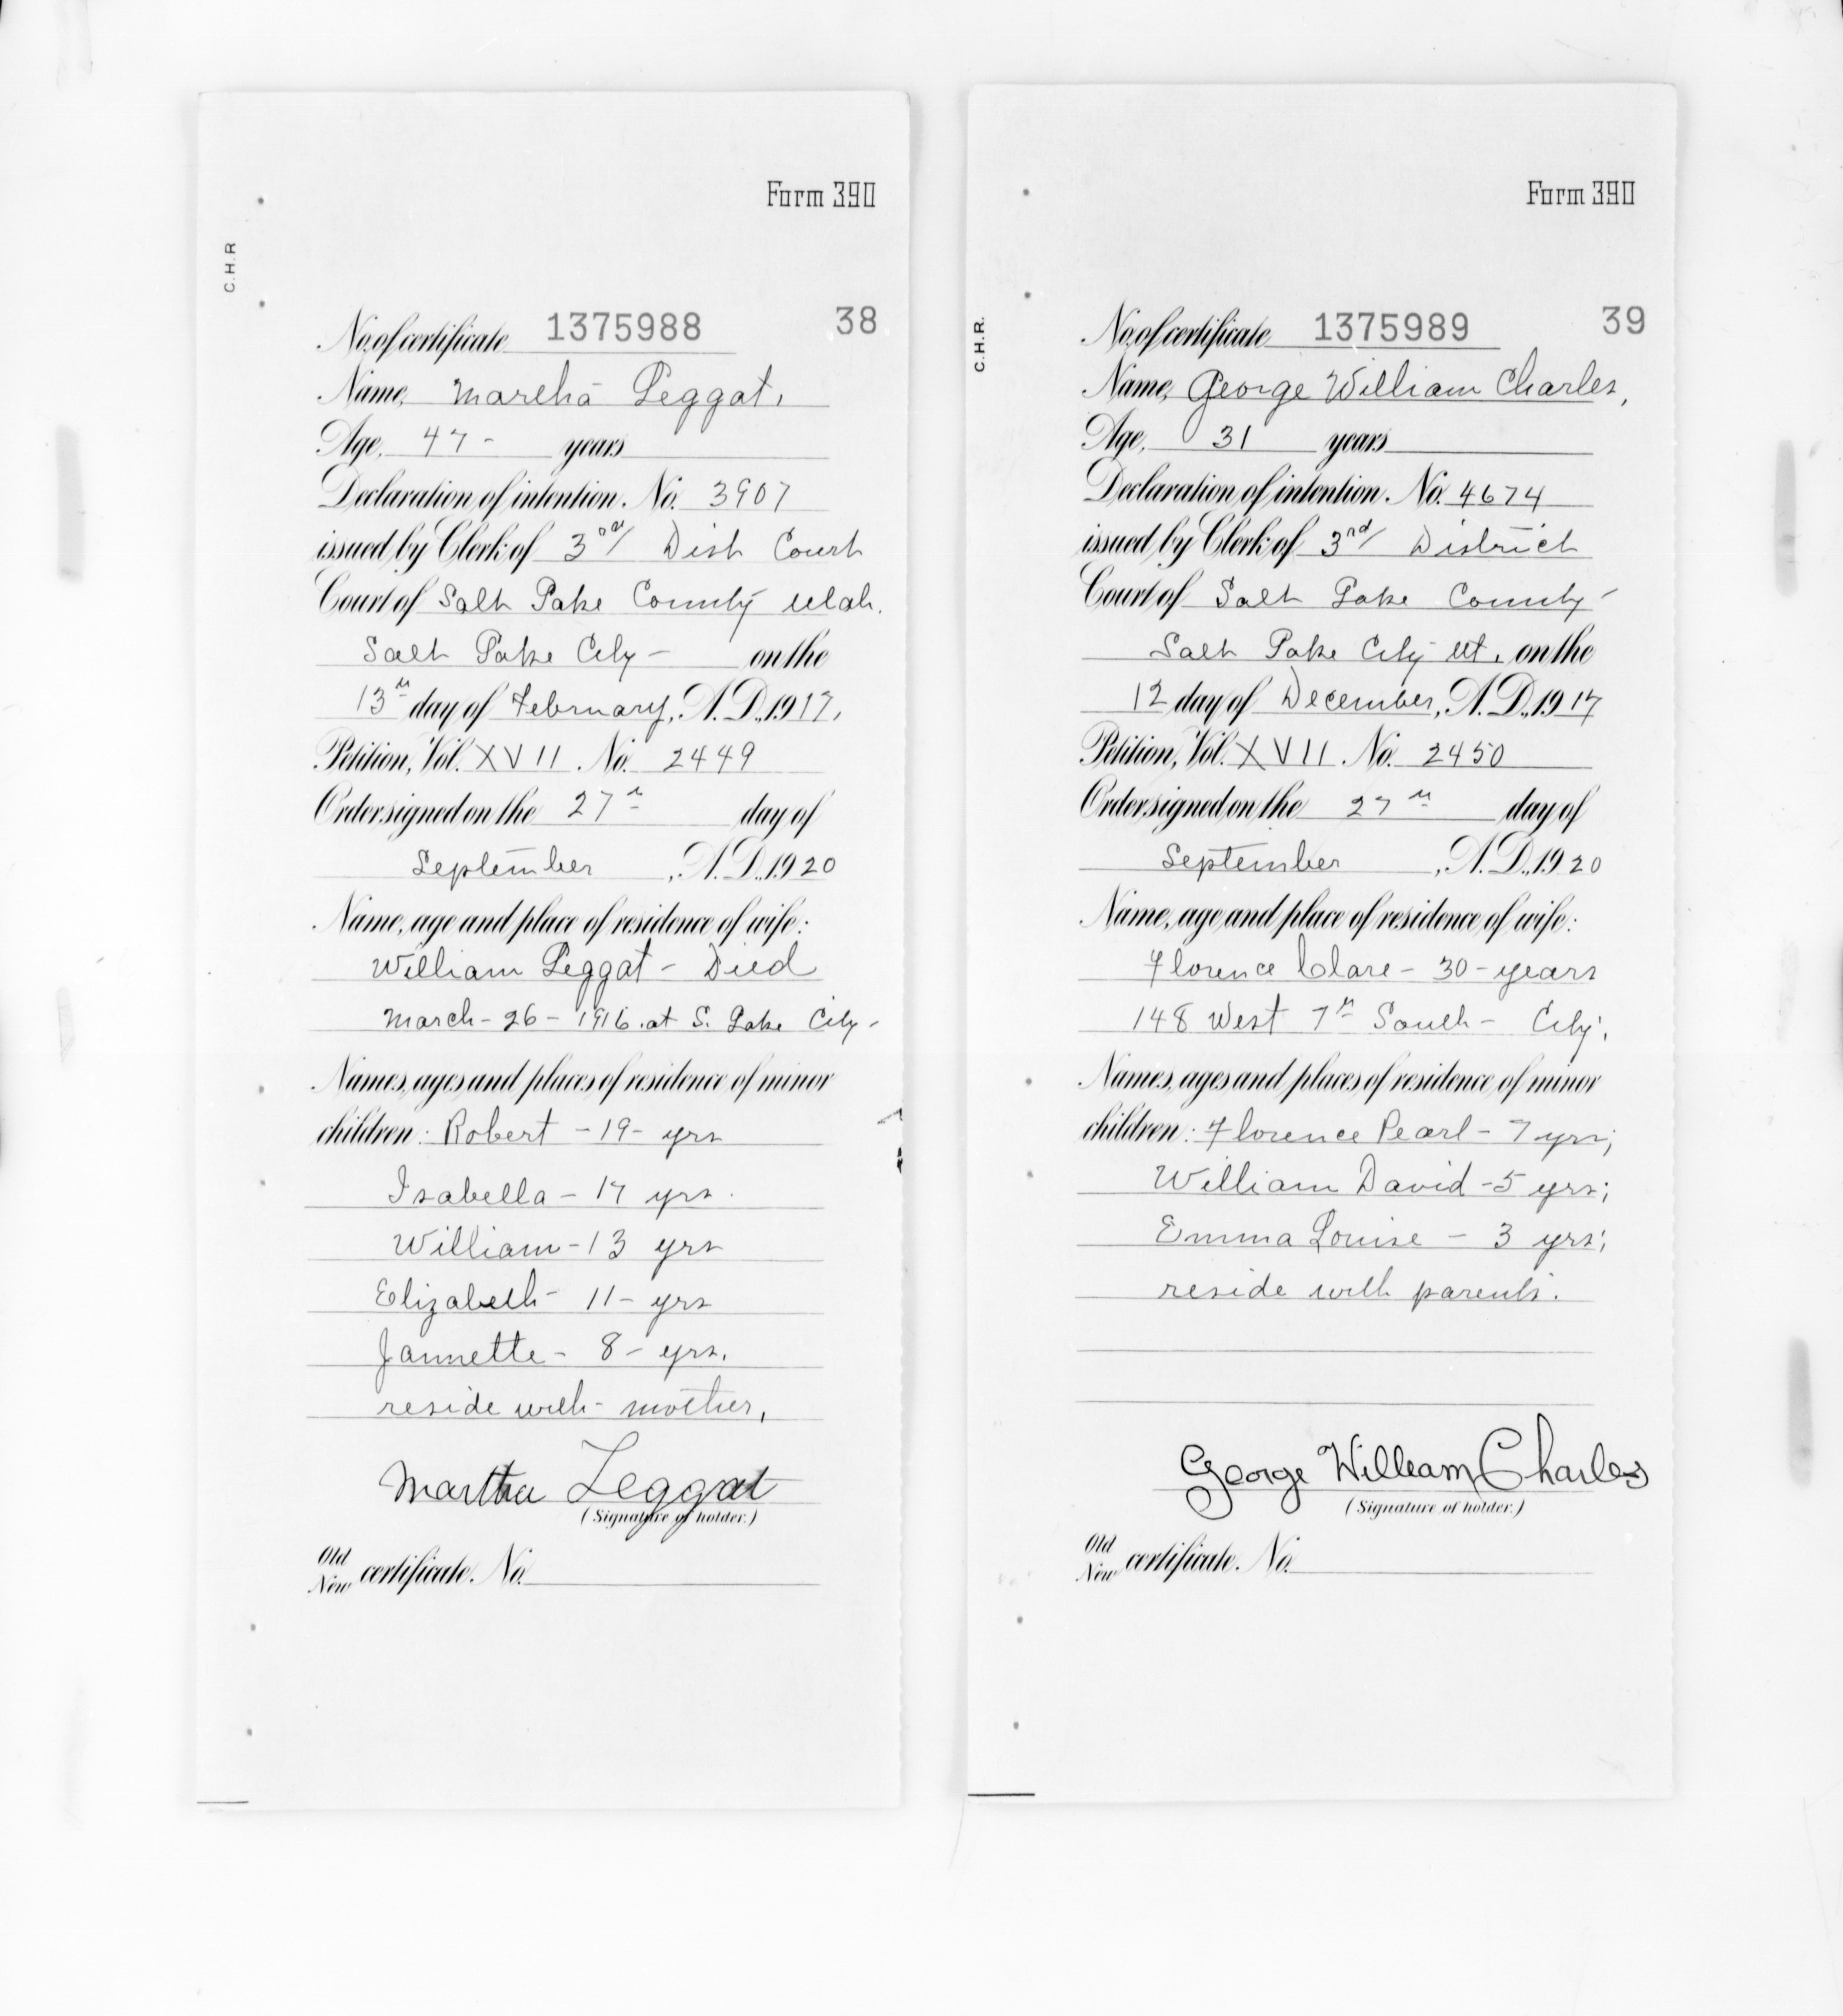 Form 390
C.H.R
No. of certificate 1375988 38
Name, Martha Leggat,
Age, 47 - years
Declaration of intention, No. 3907
issued by Clerk of 3rd Dist Court
Court of Salt Lake County Utah.
Salt Lake City - on the
13th day of February, A.D., 1917,
Petition, Vol. XVII, No. 2449
Order signed on the 27th day of
September, A.D., 1920
Name, age and place of residence of wife:
William Leggat - Died
March - 26 - 1916. at S. Lake City -
Names, ages and places of residence of minor
children: Robert - 19 - yrs
Isabella - 17 yrs.
William - 13 yrs
Elizabeth - 11 - yrs
Jannette - 8 - yrs.
reside with - mother,
Martha Leggat
(Signature of holder.)
Old
New certificate, No.
Form 390
C.H.R.
No. of certificate 1375989 39
Name, George William Charles,
Age, 31 years
Declaration of intention, No. 4674
issued by Clerk of 3rd District
Court of Salt Lake County -
Salt Lake City Ut, on the
12 day of December, A.D., 1917
Petition, Vol. XVII, No. 2450
Order signed on the 27th day of
September, A.D., 1920
Name, age and place of residence of wife:
Florence Clare - 30 - years
148 West 7th South - City.
Names, ages and places of residence of minor
children: Florence Pearl - 7 yrs;
William David - 5 yrs;
Emma Louise - 3 yrs;
reside with parents.
George William Charles
(Signature of holder.)
Old
New certificate, No.